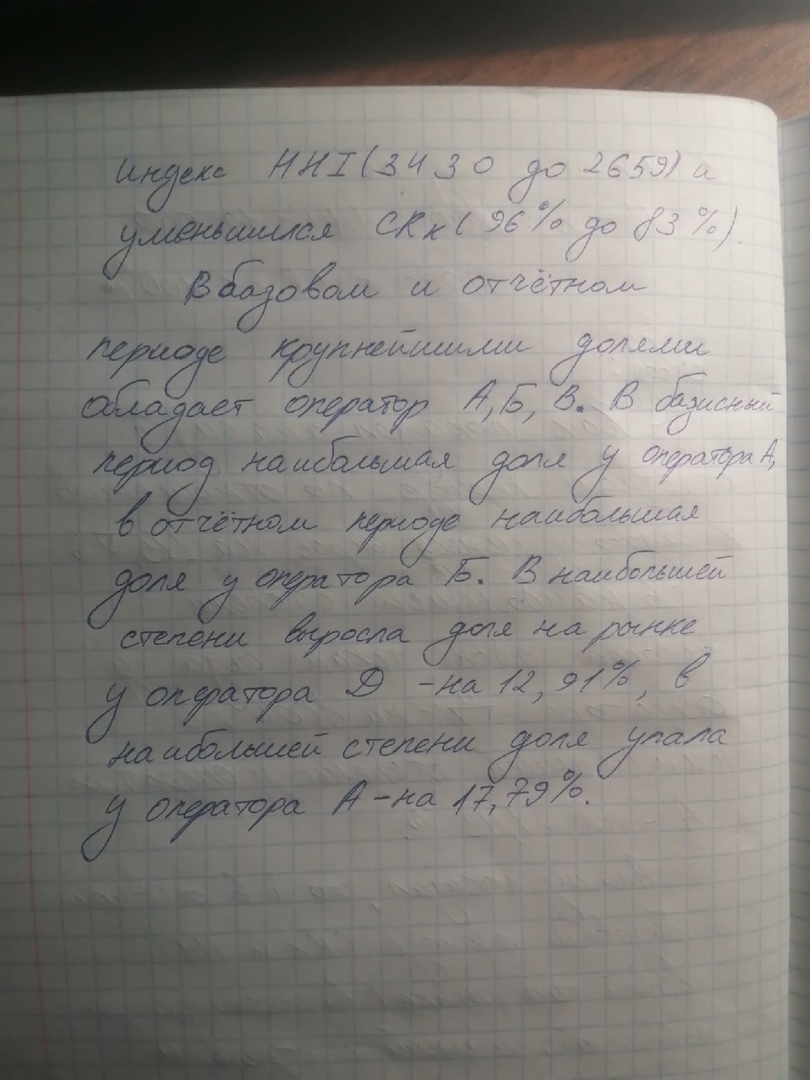 индекс HHI (3430 до 2659) и
уменьшился CRк (96% до 83%).
В базовом и отчётном
периоде крупнейшими долями
обладает оператор А, Б, В. В базисный
период наибольшая доля у оператора А,
в отчётном периоде наибольшая
доля у оператора Б. В наибольшей
степени выросла доля на рынке
у оператора D - на 12,91%, в
наибольшей степени доля упала
у оператора А - на 17,79%.